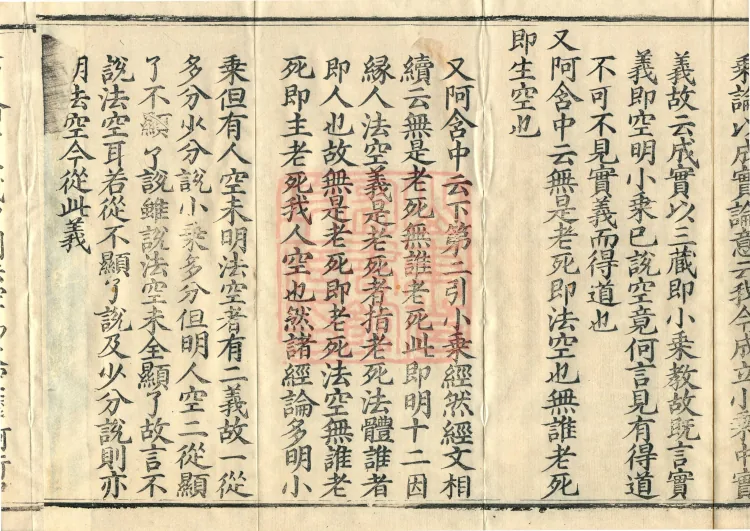 乘論以成實論意云我今成立小乘中實
義故云成實以三藏即小乘教故既言實
義即空明小乘已說空竟何言見有得道
不可不見實義而得道也
又阿含中云無是老死即法空也無誰老死
即生空也
又阿含中云下第二引小乘經然經文相
續云無是老死無誰老死此即明十二因
緣人法空義是老死者指老死法體誰者
即人也故無是老死即老死法空無誰老
死即主老死我人空也然諸經論多明小
乘但有人空未明法空者有二義故一從
多分少分說小乘多分但明人空二從顯
了不顯了說雖說法空未全顯了故言不
說法空耳若從不顯了說及少分說則亦
明法空今從此義